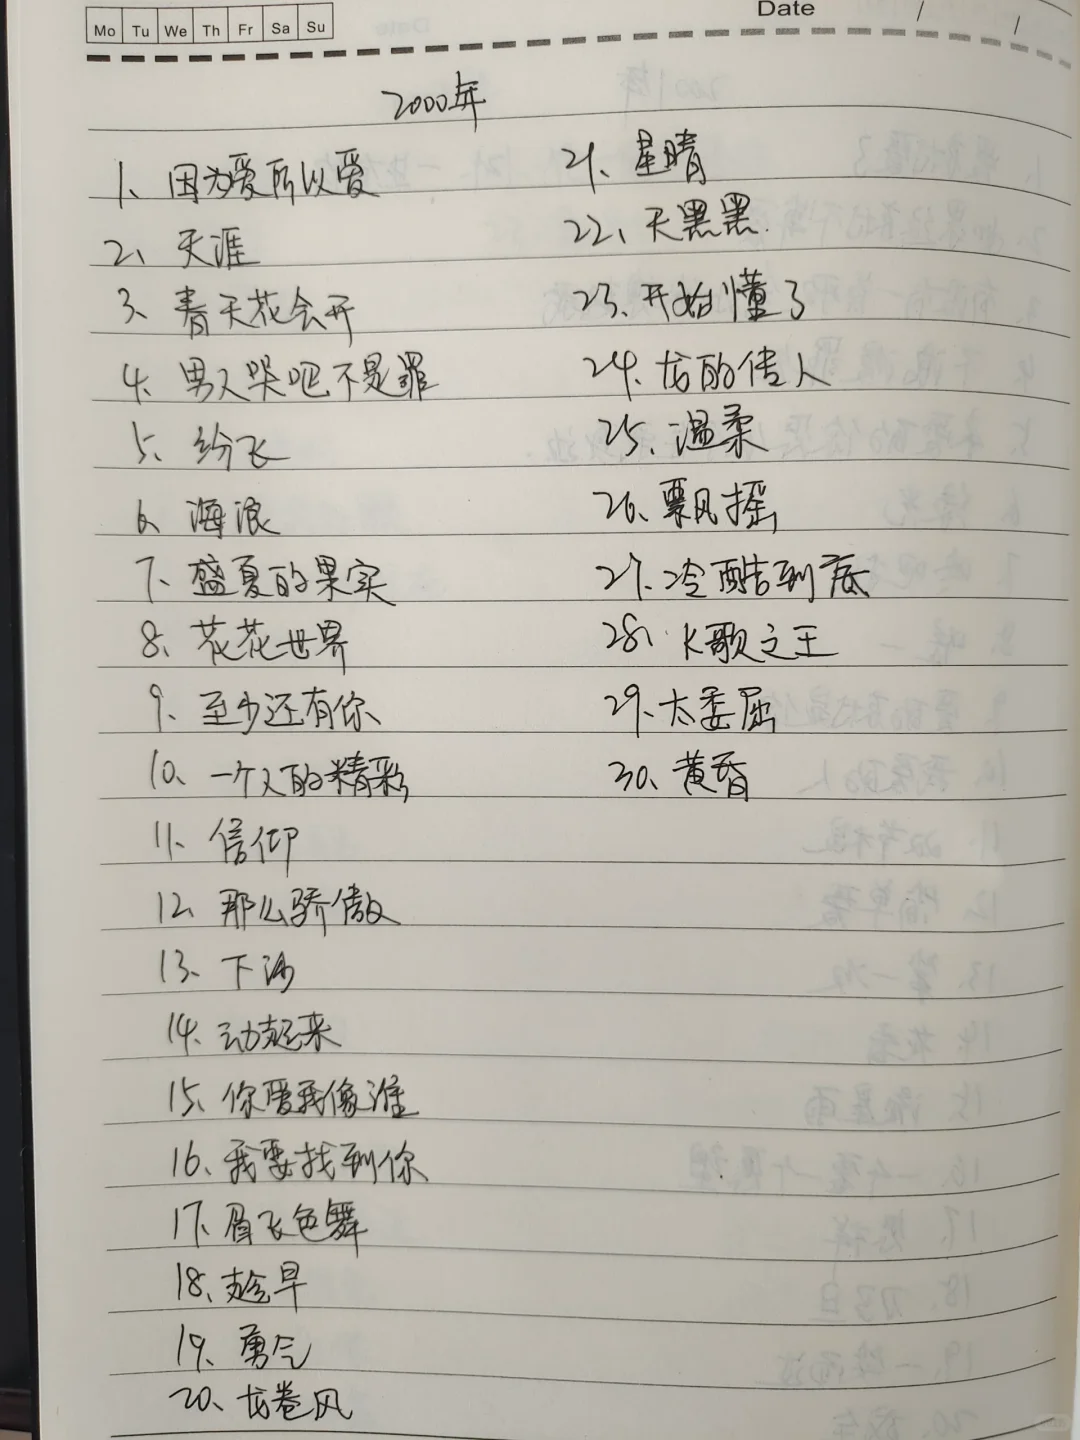 Mo Tu We Th Fr Sa Su
Date / /
2000年
1、因为爱所以爱
2、天涯
3、春天花会开
4、男人哭吧不是罪
5、纷飞
6、海浪
7、盛夏的果实
8、花花世界
9、至少还有你
10、一个人的精彩
11、信仰
12、那么骄傲
13、下沙
14、动起来
15、你爱我像谁
16、我要找到你
17、眉飞色舞
18、趁早
19、勇气
20、龙卷风
21、星晴
22、天黑黑.
23、开始懂了
24、龙的传人
25、温柔
26、飘摇
27、冷酷到底
28、K歌之王
29、太委屈
30、黄昏